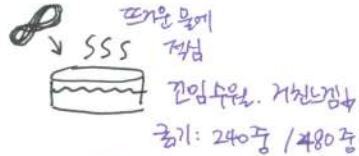 뜨거운 물에
적심
SSS
꼬임수월. 거친느낌↓
굵기: 240중 / 480중